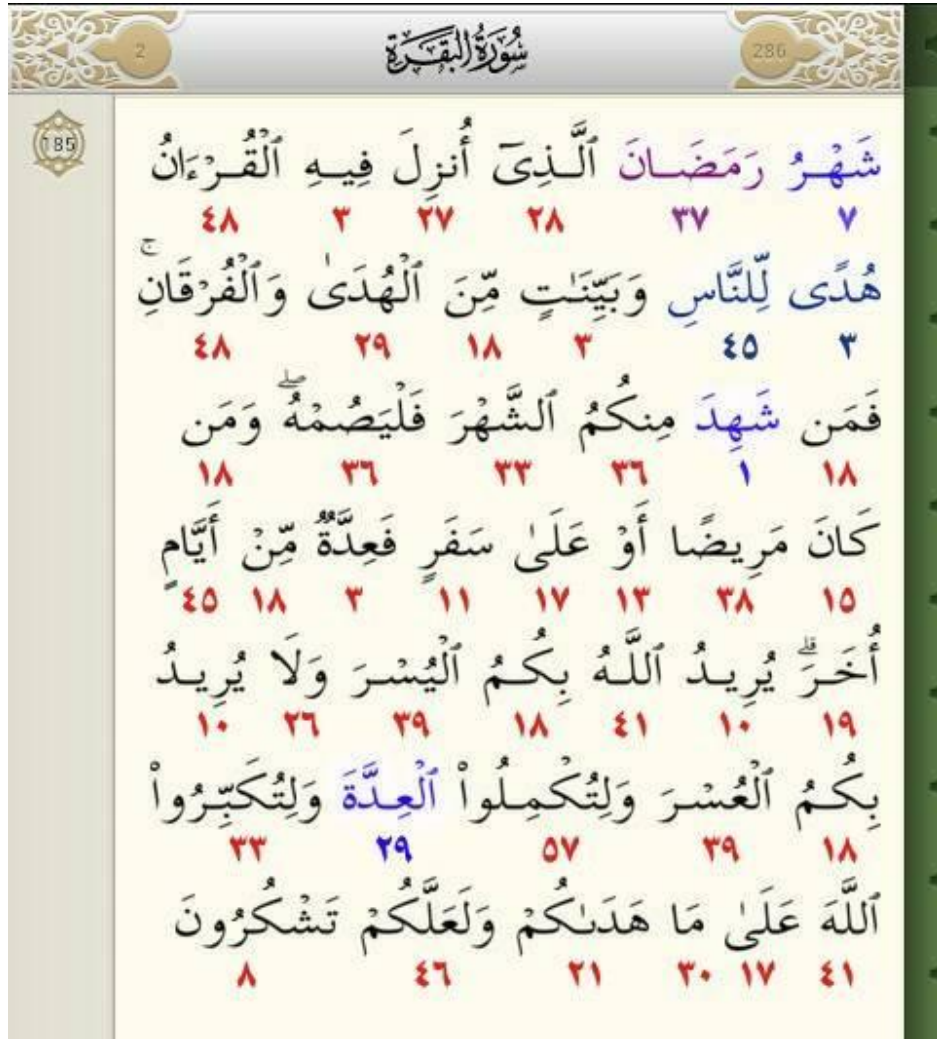 2 سُورَةُ الْبَقَرَةِ 286
185
شَهْرُ رَمَضَانَ ٱلَّذِىٓ أُنزِلَ فِيهِ ٱلْقُرْءَانُ
٧ ٣٧ ٢٨ ٢٧ ٣ ٤٨
هُدًى لِّلنَّاسِ وَبَيِّنَـٰتٍ مِّنَ ٱلْهُدَىٰ وَٱلْفُرْقَانِ ۚ
٣ ٤٥ ٣ ١٨ ٢٩ ٤٨
فَمَن شَهِدَ مِنكُمُ ٱلشَّهْرَ فَلْيَصُمْهُ ۖ وَمَن
١٨ ١ ٣٦ ٣٣ ٣٦ ١٨
كَانَ مَرِيضًا أَوْ عَلَىٰ سَفَرٍ فَعِدَّةٌ مِّنْ أَيَّامٍ
١٥ ٣٨ ١٣ ١٧ ١١ ٣ ١٨ ٤٥
أُخَرَ ۗ يُرِيدُ ٱللَّهُ بِكُمُ ٱلْيُسْرَ وَلَا يُرِيدُ
١٩ ١٠ ٤١ ١٨ ٣٩ ٢٦ ١٠
بِكُمُ ٱلْعُسْرَ وَلِتُكْمِلُوا۟ ٱلْعِدَّةَ وَلِتُكَبِّرُوا۟
١٨ ٣٩ ٥٧ ٢٩ ٣٣
ٱللَّهَ عَلَىٰ مَا هَدَىٰكُمْ وَلَعَلَّكُمْ تَشْكُرُونَ
٤١ ١٧ ٣٠ ٢١ ٤٦ ٨